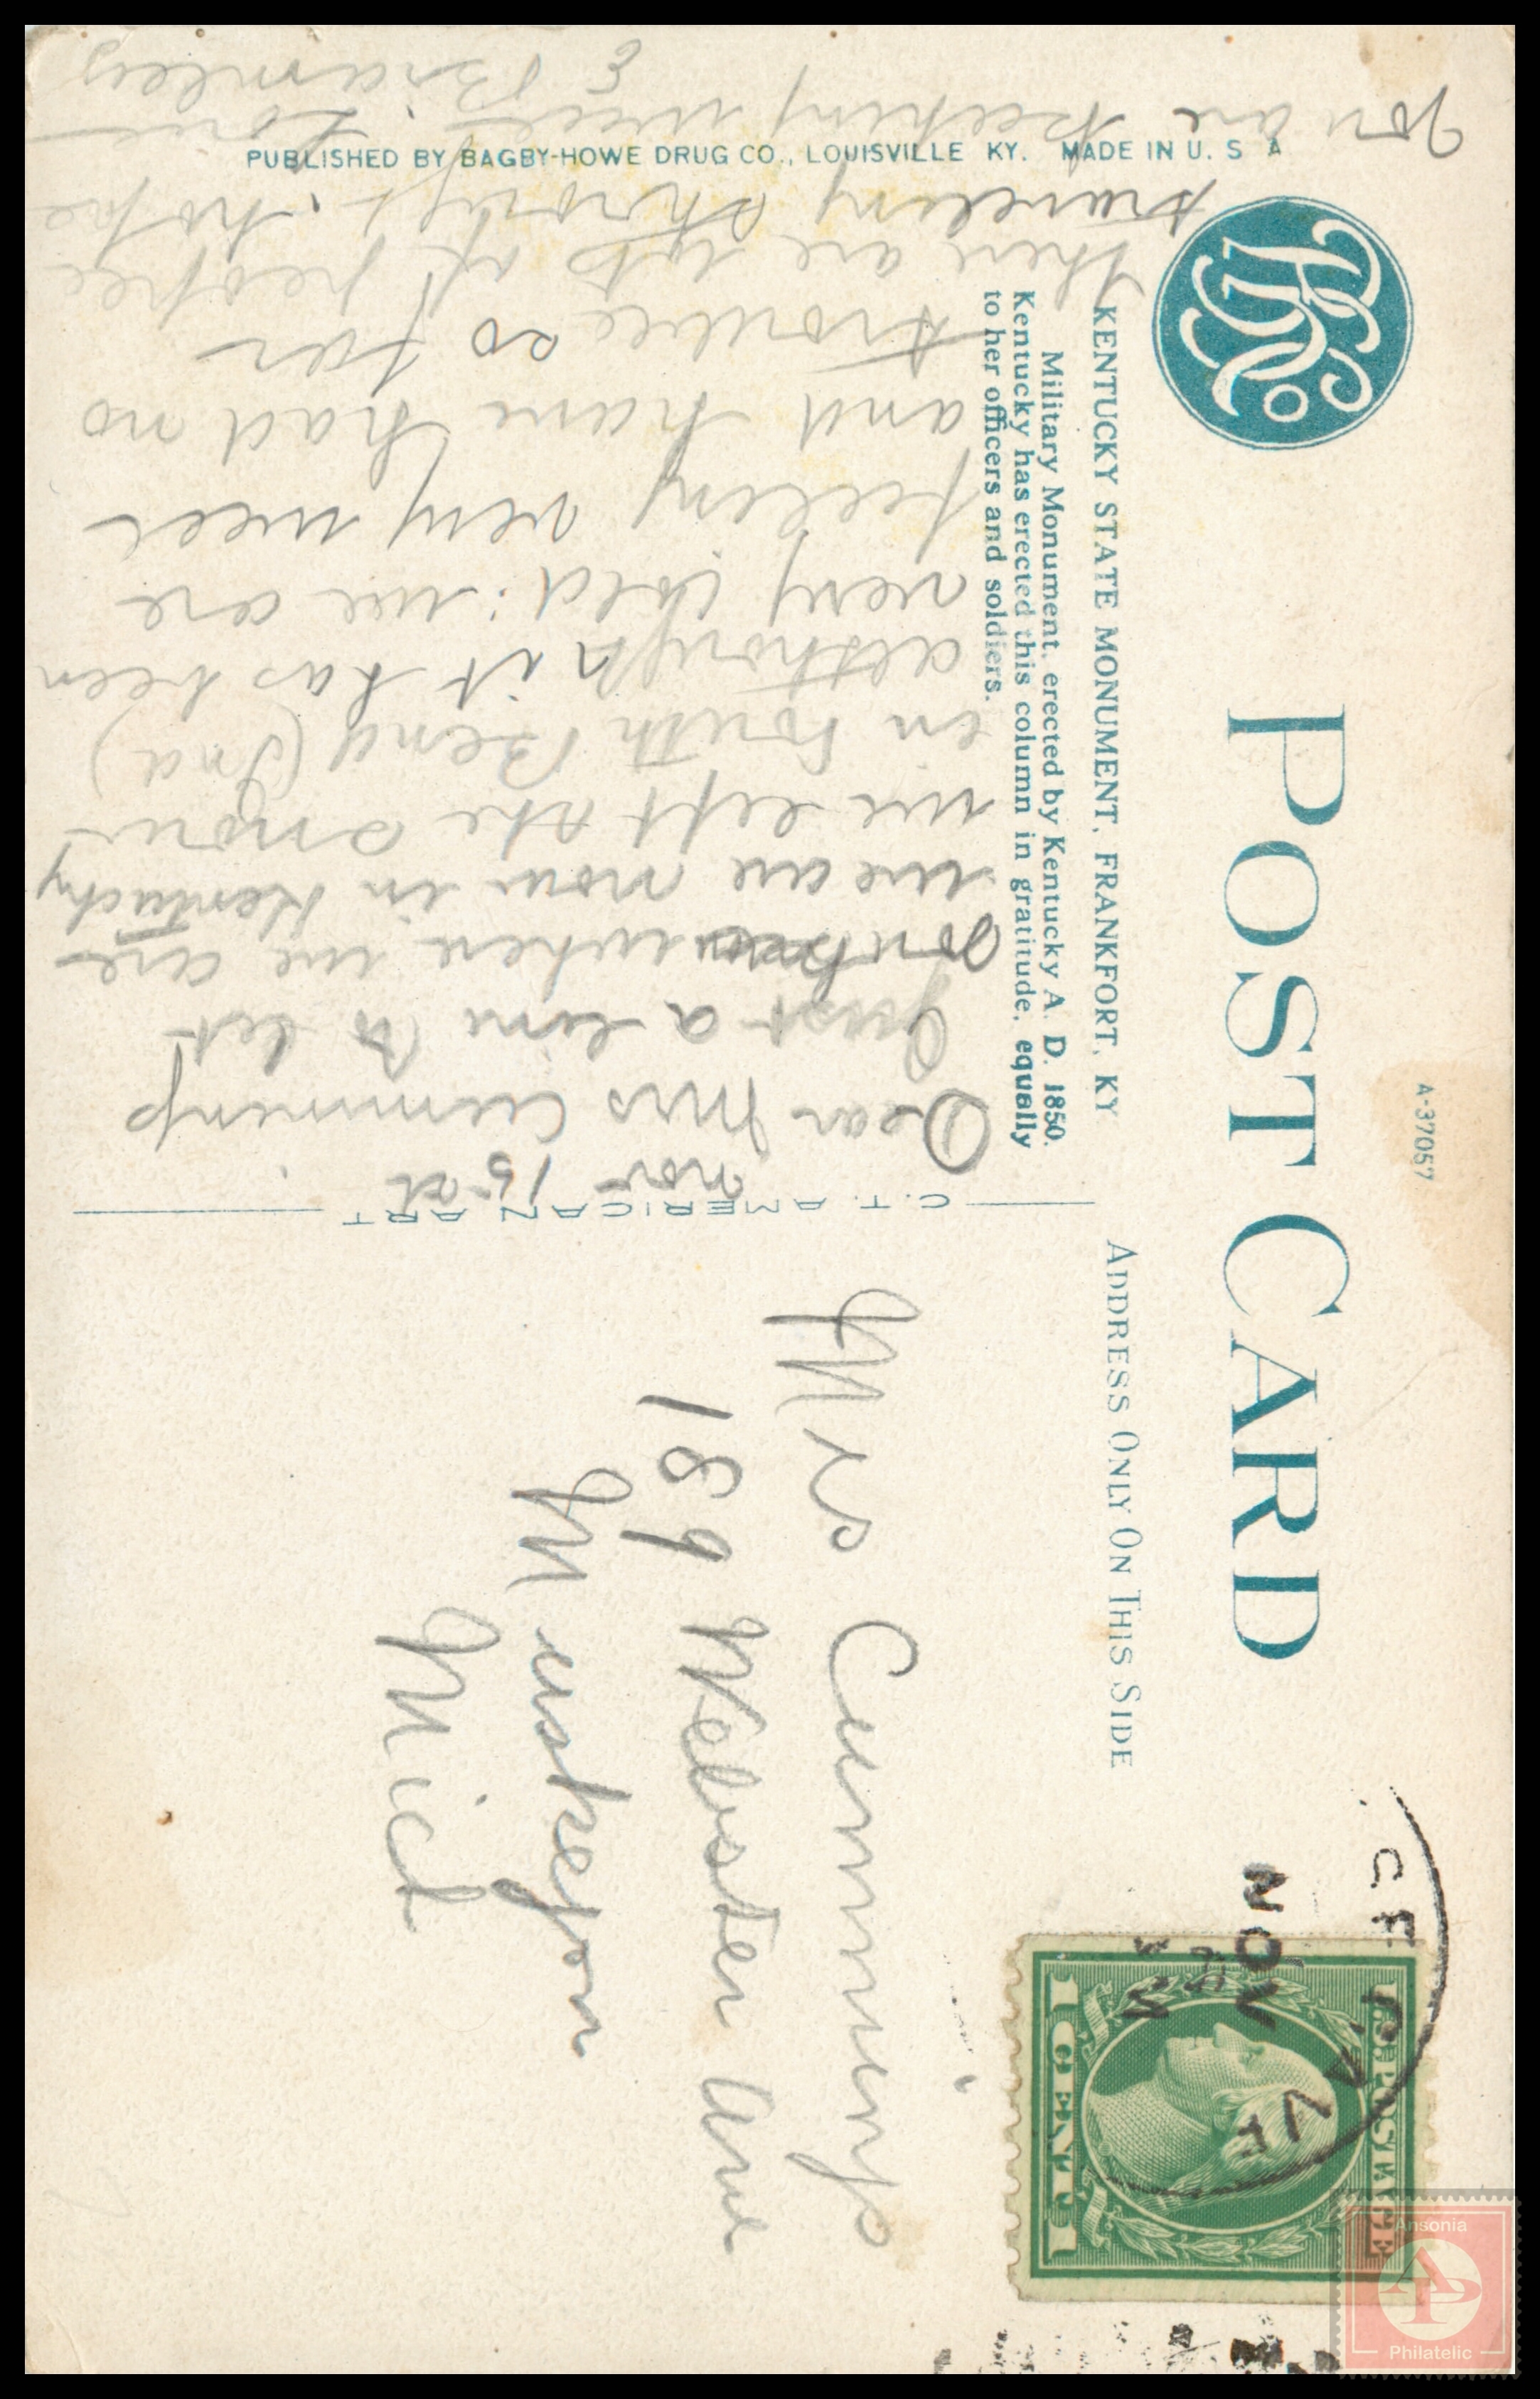 POST CARD
A-37057
ADDRESS ONLY ON THIS SIDE
KENTUCKY STATE MONUMENT, FRANKFORT, KY
Military Monument, erected by Kentucky A. D. 1850.
Kentucky has erected this column in gratitude, equally
to her officers and soldiers.
PUBLISHED BY BAGBY-HOWE DRUG CO., LOUISVILLE KY. MADE IN U. S A
C.T. AMERICAN ART
Nov 15
Dear Mrs Cummings
Just a line to let
you where we are
we are now in Kentucky
we left the snow
in South Bend (Ind)
although it has been
very cold. we are
feeling very well
and have had no
trouble so far
there are lots of people
traveling through. hope
you are keeping well Love
E Bramley
Mrs Cummings
189 Webster Ave
Muskegon
Mich
NOV
AVE
U.S. POSTAGE
1 CENT 1
Ansonia
AP
Philatelic